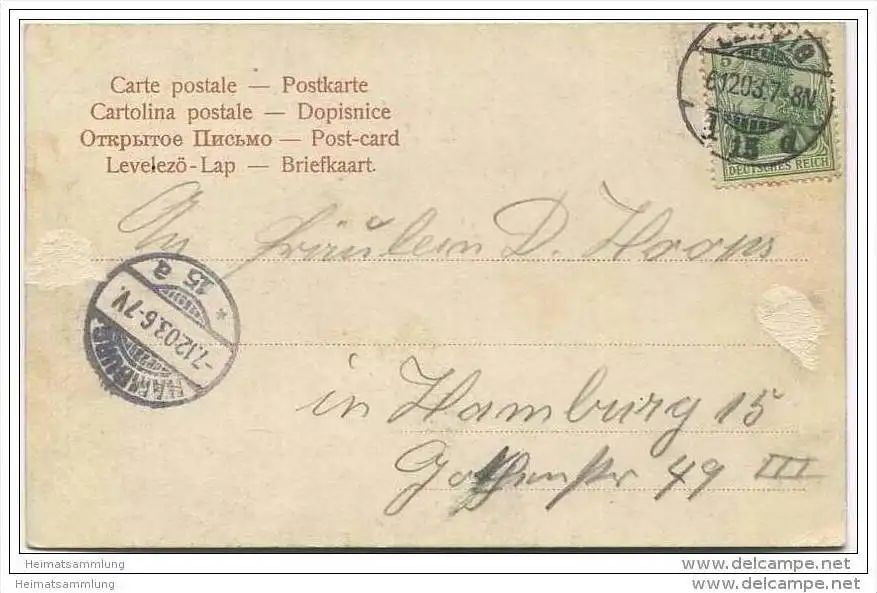 Carte postale — Postkarte
Cartolina postale — Dopisnice
Открытое Письмо — Post-card
Levelező-Lap — Briefkaart.
LEIPZIG
6.12.03.7-8N.
13 d
5
DEUTSCHES REICH
An Fräulein D. Hoops
HAMBURG
-7.12.03.6-7V.
* 15 a
in Hamburg 15
49 III
Heimatsammlung
Heimatsammlung
www.delcampe.net
www.delcampe.net